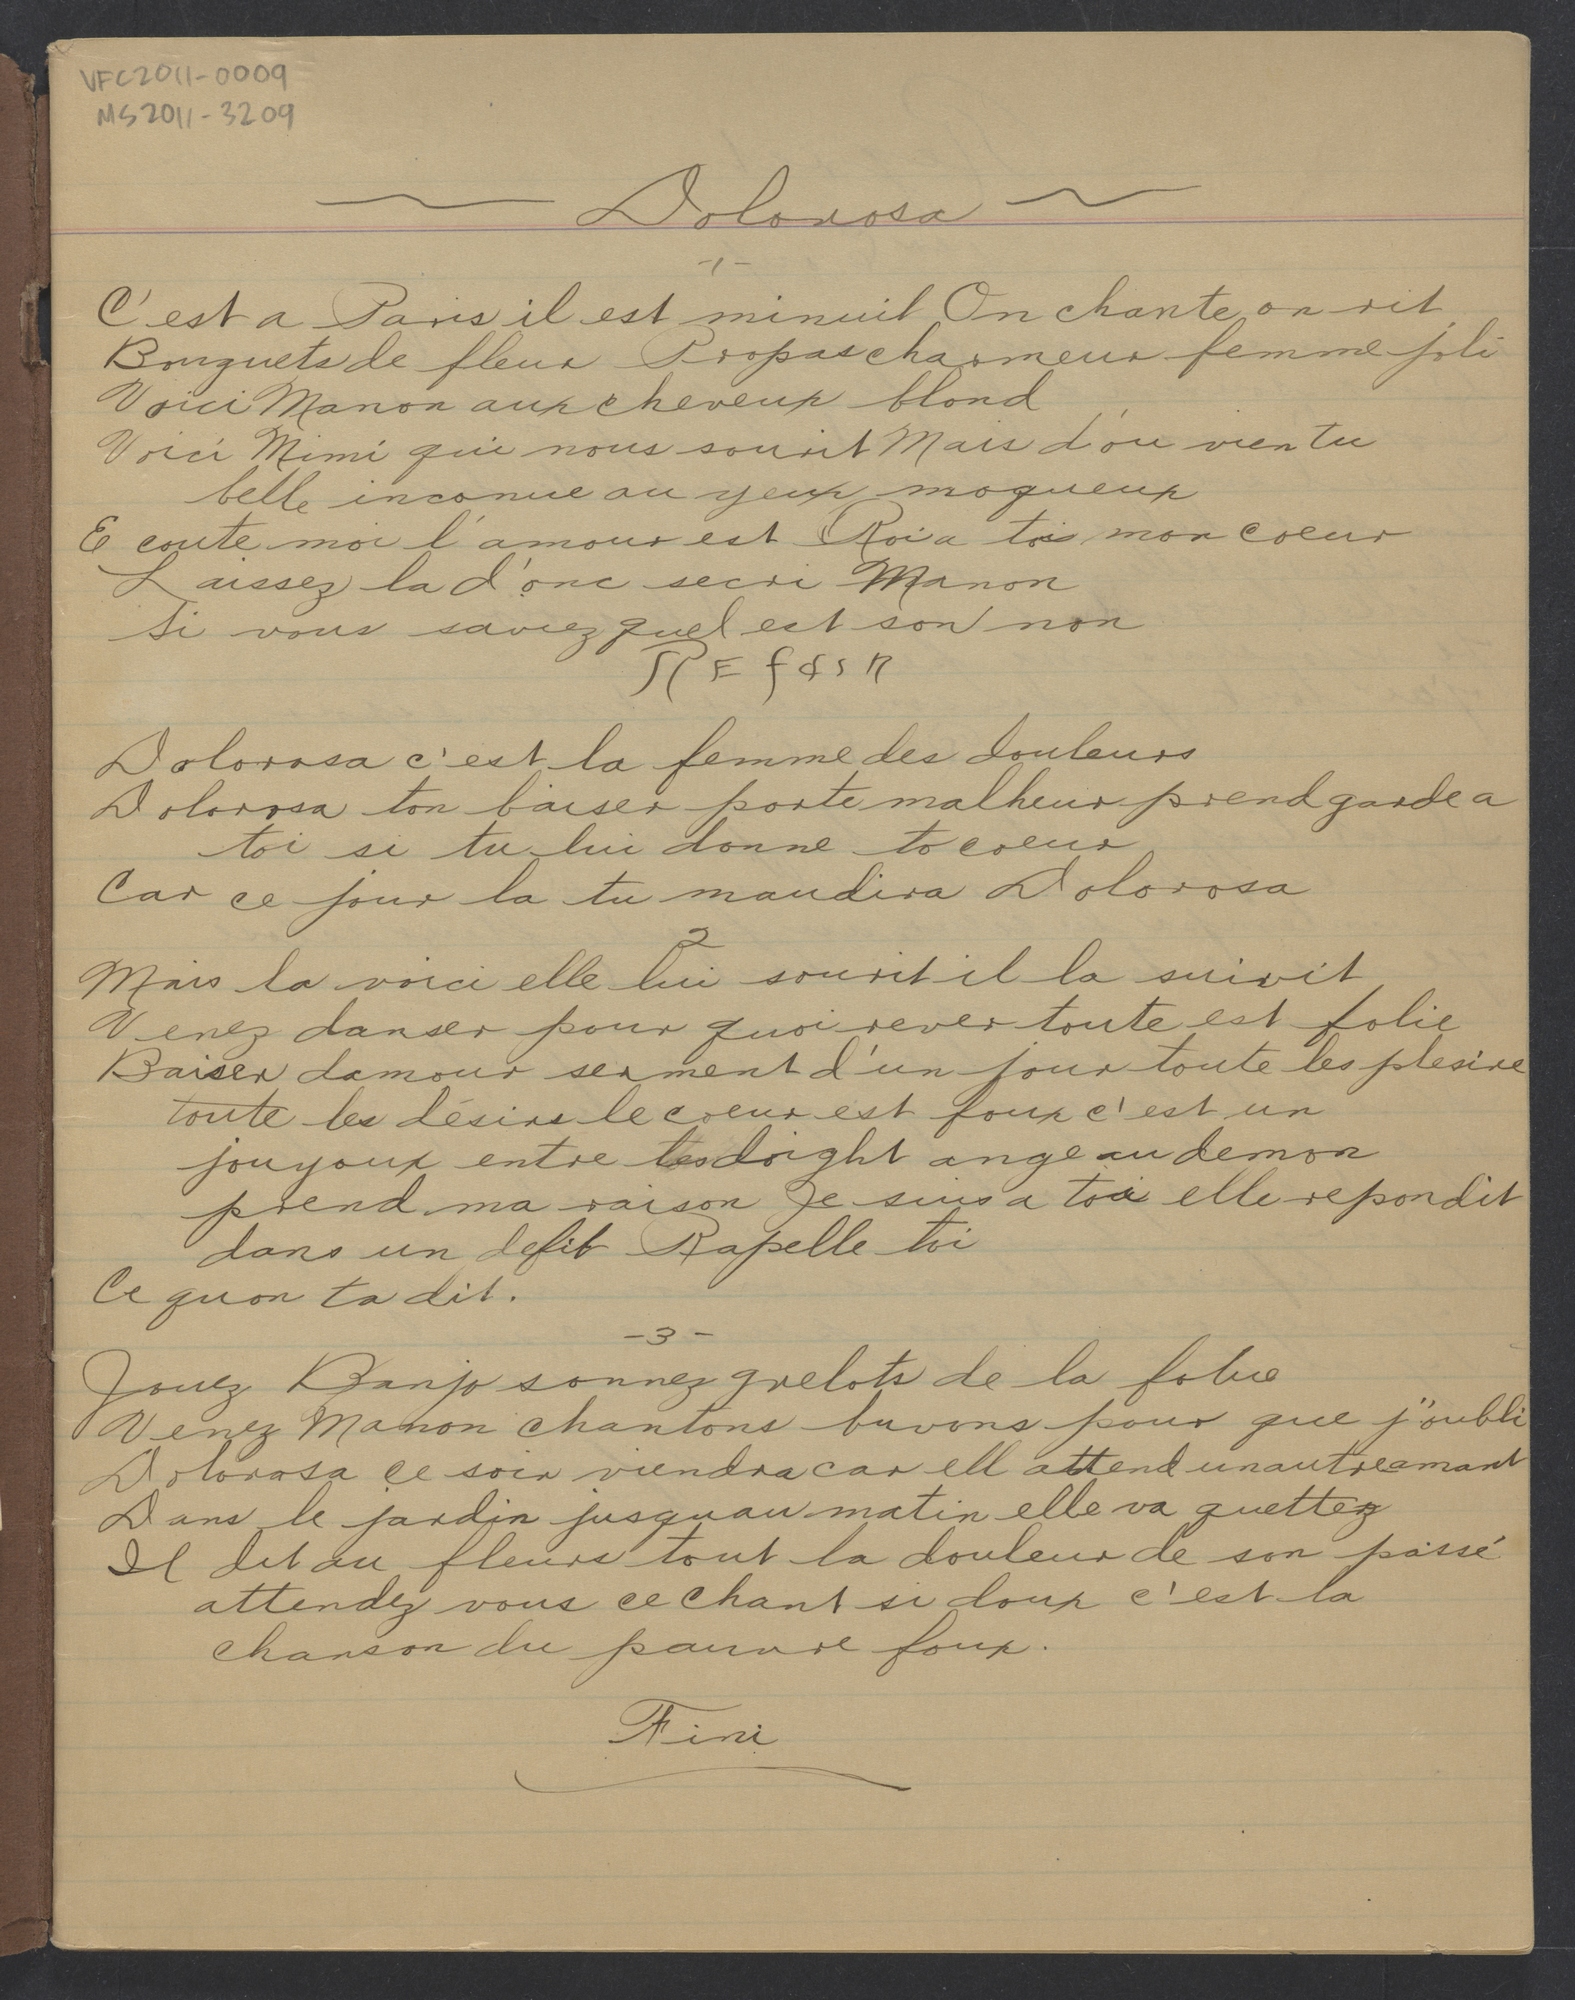 VFC2011-0009
MS2011-3209
Dolorosa
-1-
C'est a Paris il est minuit On chante on rit
Bouquets de fleur Propas charmeur femme joli
Voici Manon aux cheveux blond
Voici Mimi qui nous sourit Mais d'ou vien tu
belle inconue au yeux moqueux
E coute moi l'amour est Roi a toi mon coeur
Laissez la d'onc secri Manon
Si vous saviez quel est son non
REfrain
Dolorosa c'est la femme des douleurs
Dolorosa ton baiser porte malheur prend garde a
toi si tu lui donne to coeur
Car ce jour la tu maudira Dolorosa
2
Mais la voici elle lui sourit il la suivit
Venez danser pour quoi rever toute est folie
Baiser damour serment d'un jour toute les plesire
toute les désirs le coeur est foux c'est un
jouyoux entre tes doight ange au demon
prend ma raison Je suis a toi elle repondit
dans un defit Rapelle toi
Ce quon ta dit.
-3-
Jouez Banjo sonnez grelots de la folie
Venez Manon chantons buvons pour que j'oubli
Dolorosa ce soir viendra car ell attend un autre amant
Dans le jardin jusquau matin elle va guettez
Il dit au fleurs tout la douleur de son passé
attendez vous ce chant si doux c'est la
chanson du pauvre foux.
Fini